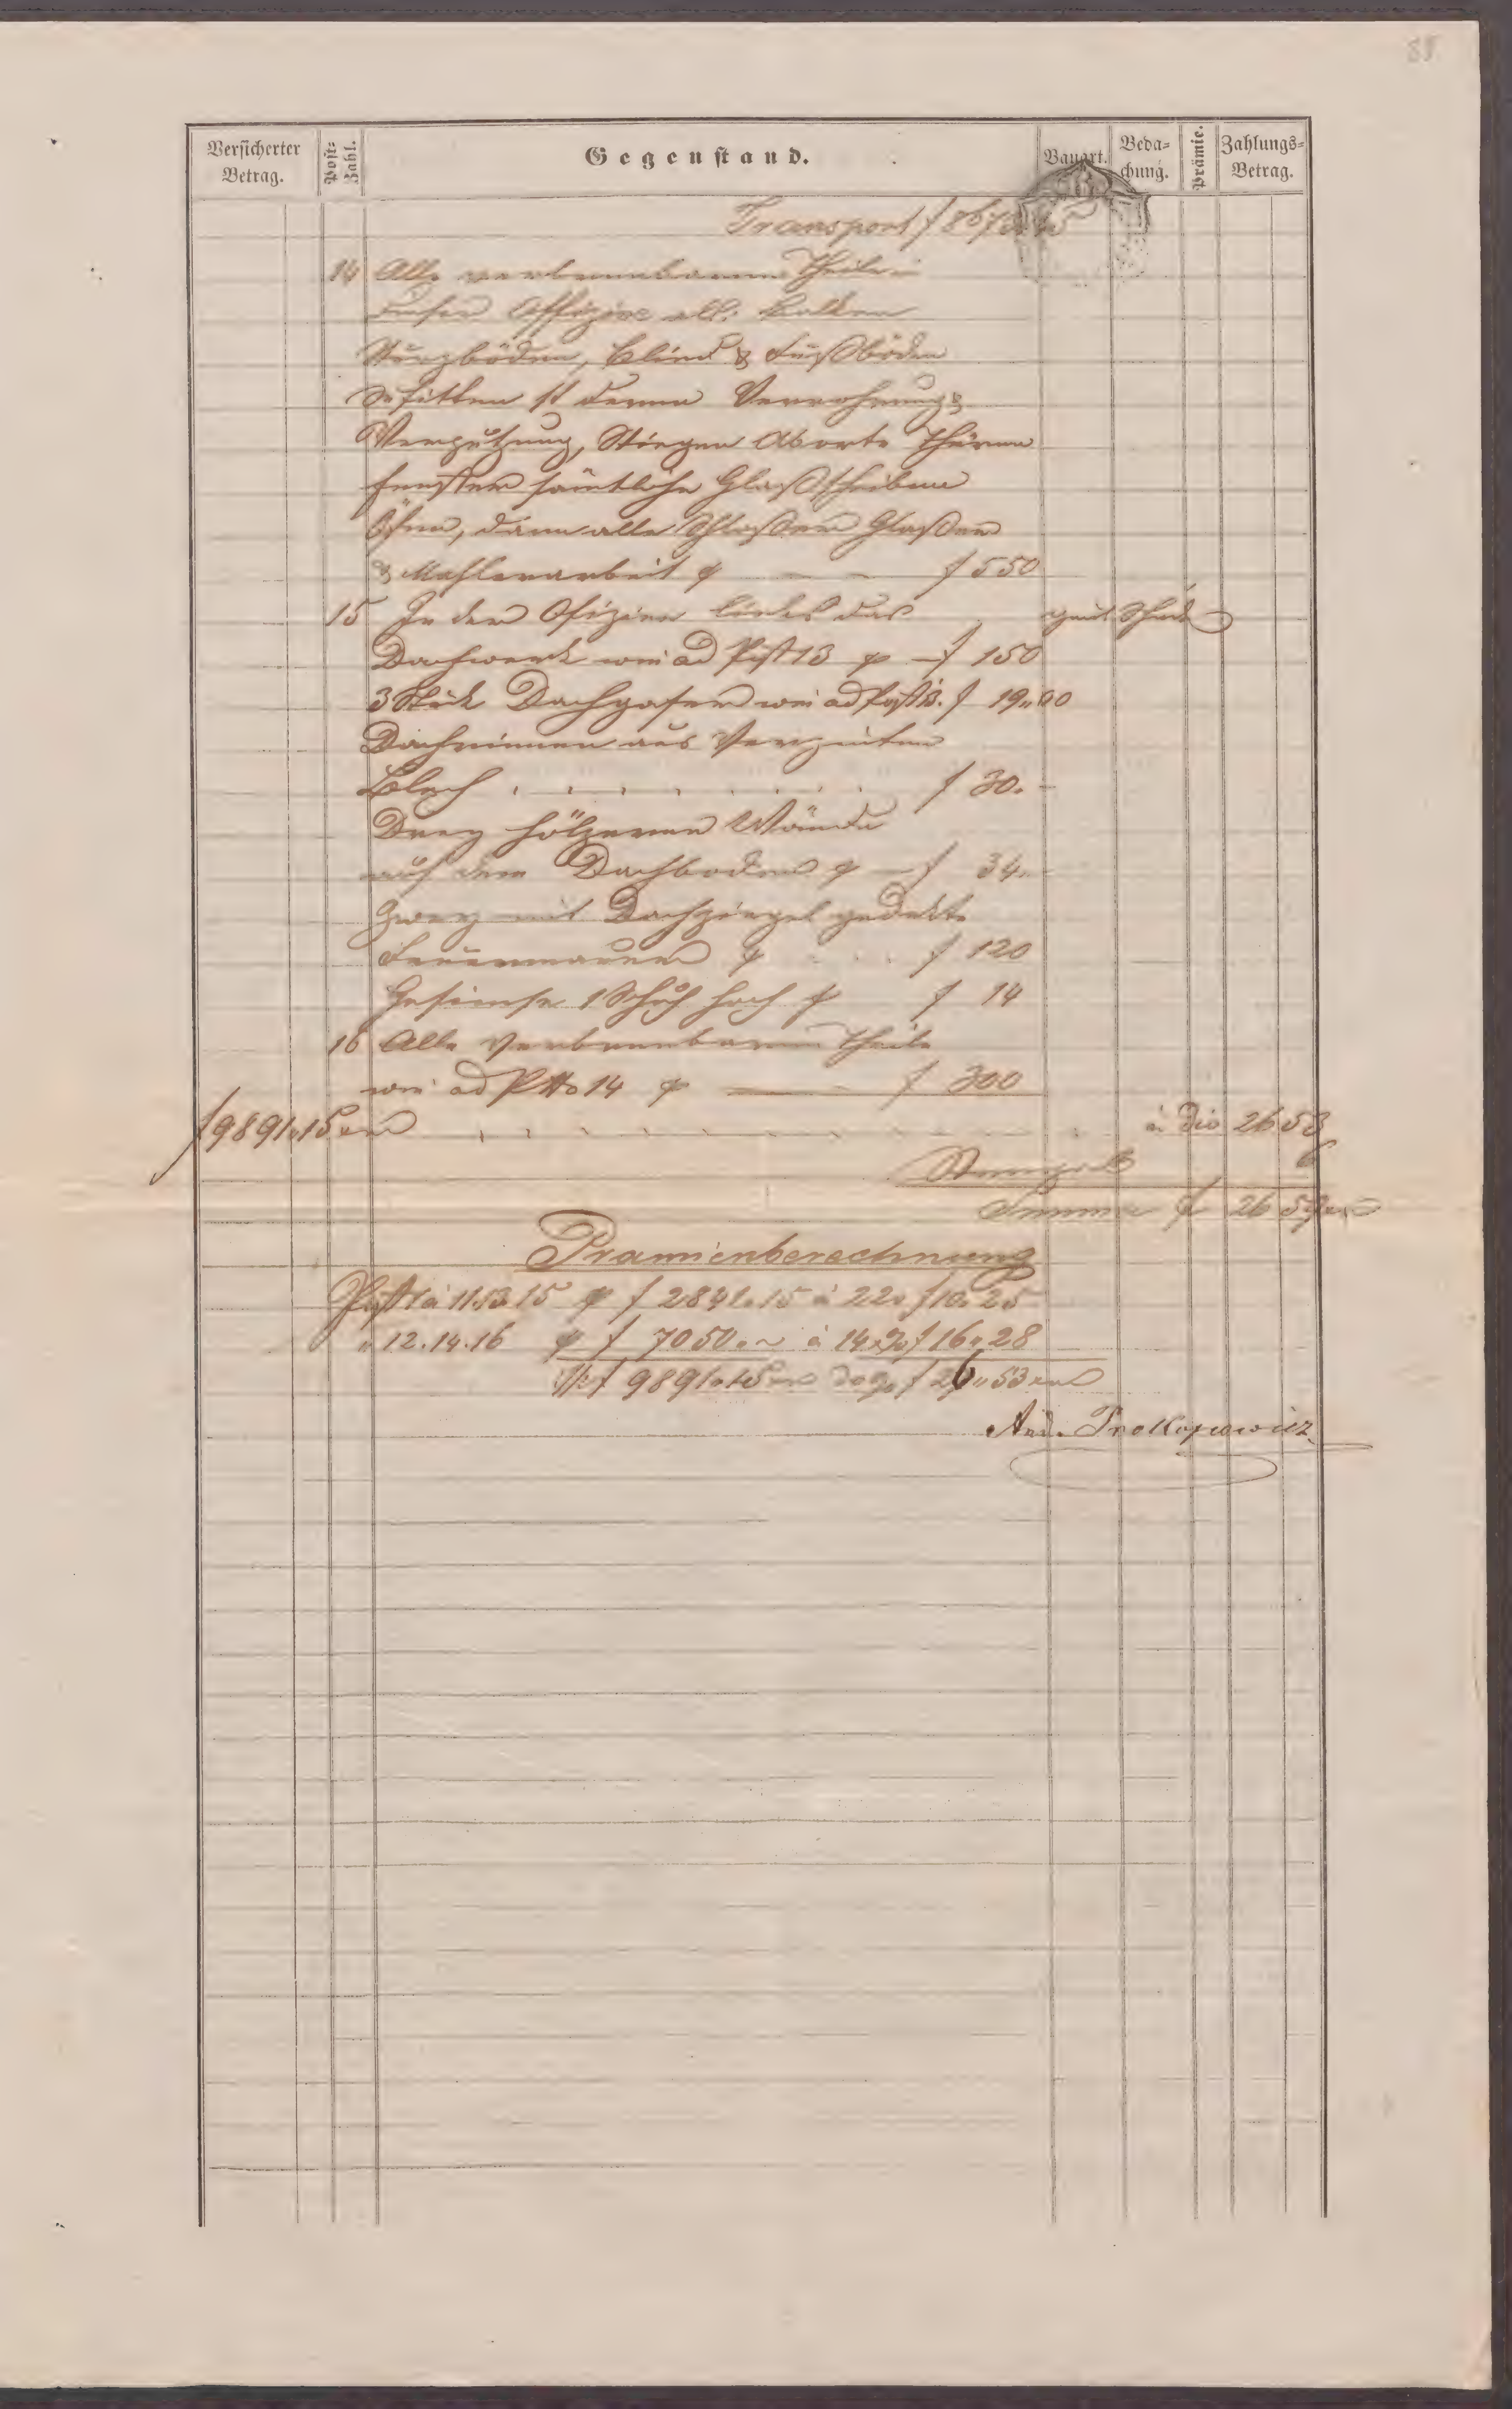 88
Versicherter Betrag.
Post-Zahl.
Gegenstand.
Bauart.
Beda-chung.
Prämie.
Zahlungs-Betrag.
Transport f 867
14 Alle verbrennbaren Theile
dieser Offizin all: Balken
Sturzböden, Blind & Fußböden
Sufitten st deren Verrohrung &
Verputzung, Stiegen Aborte Thüren
Fenster sämtliche Glaßscheiben
Öfen, dann alle Schloßer Glaßer
& Mahlerarbeit f 550
15 In der Ofizin links das
Dachwerk wie ad Post 13 f 150
3 Stück Dachgaser wie ad Post 13. f 19"00
Dachrinnen aus Verzinten
Blech f 30.-
Drey hölzerne Wände
auf dem Dachboden f 34.-
Zwey mit Dachziegel gedekte
Feuermauern f 120
Gesimse 1 Schuh hoch f 14
16 Alle verbrennbaren Theile
wie ad Ptto 14 f 300
f 9891"15 à dio 26 53
Stempel 6
Summa f 26 59
Pramienberechnung
Post 1 à 11.13.15 f 2841.15 à 22 f 10.25
" 12.14.16 f 7050.~ à 14 f 16"28
f 9891.15 f 26"53
And. Prokopowicz